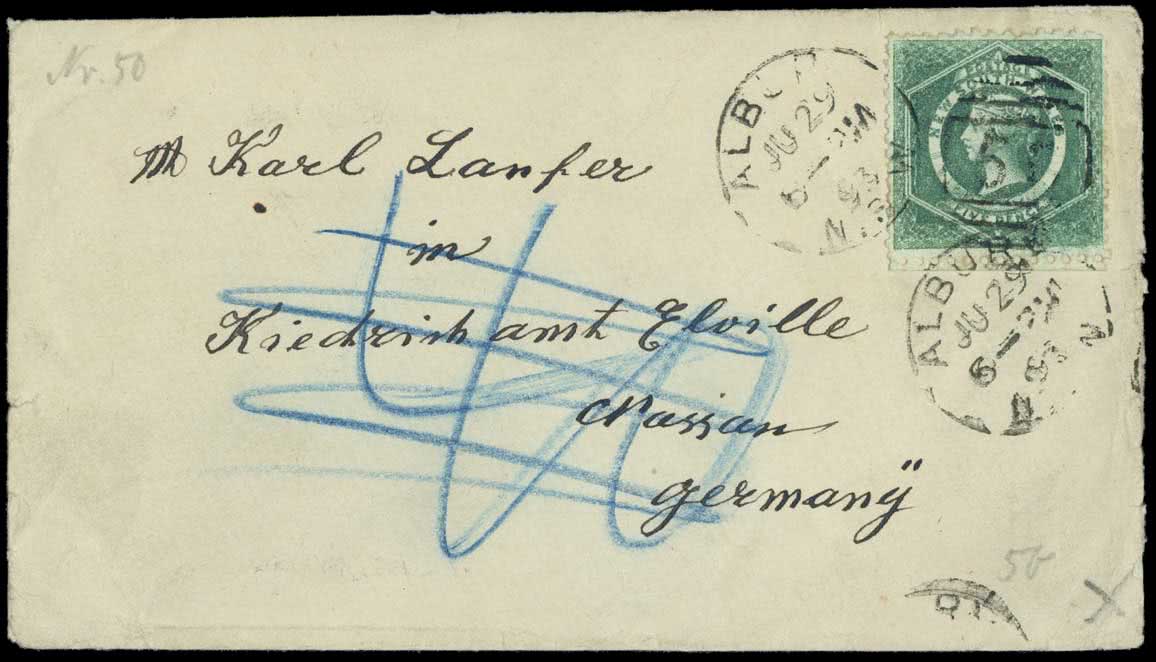 Nr. 50
M Karl Lanfer
in
Kiedrich amt Elville
Nassau
Germany"
ALBURY
JU 29
6 — PM
93
N.S.W
POSTAGE
NEW SOUTH WALES
FIVE PENCE
ALBURY
JU 29
6 — PM
93
N
RY